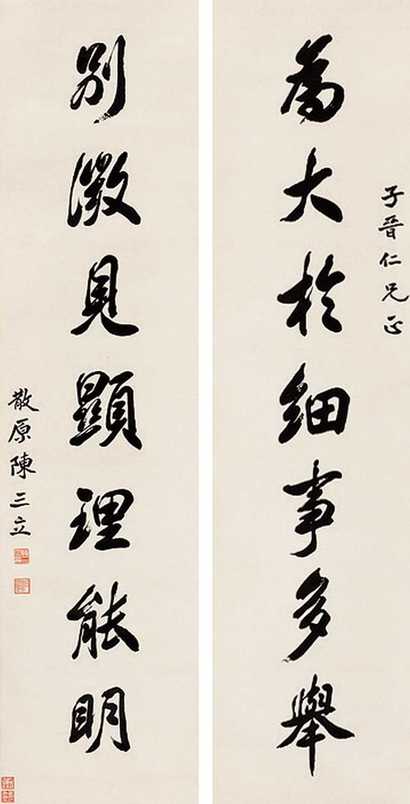 子晉仁兄正
為大於細事多舉
別微見顯理能明
散原陳三立